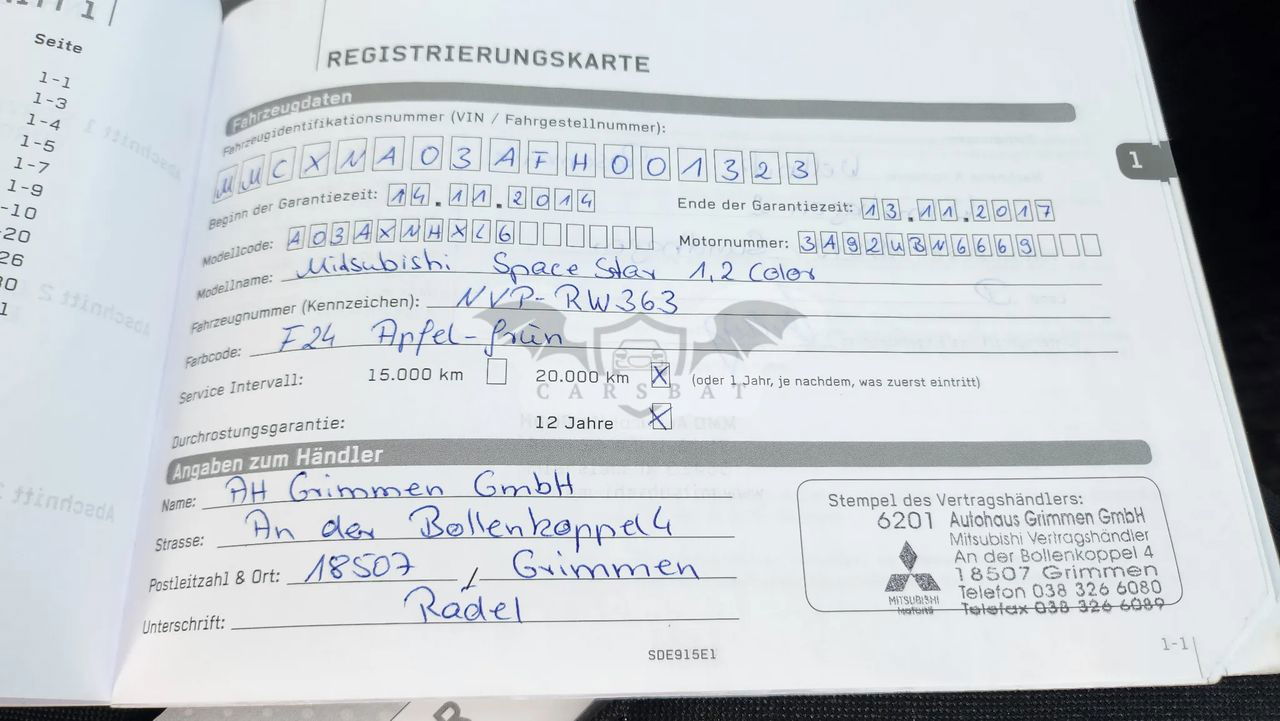 Seite
1-1
1-3
1-4
1-5
1-7
1-9
-10
-20
26
REGISTRIERUNGSKARTE
Fahrzeugdaten
Fahrzeugidentifikationsnummer (VIN / Fahrgestellnummer):
MMCXNA03AFH001323
Beginn der Garantiezeit: 14.11.2014 Ende der Garantiezeit: 13.11.2017
Modellcode: A03AXNHXL6 Motornummer: 3A92UBN6669
Modellname: Mitsubishi Space Star 1,2 Color
Fahrzeugnummer (Kennzeichen): NVP-RW363
Farbcode: F24 Apfel-grün
Service Intervall: 15.000 km 20.000 km X (oder 1 Jahr, je nachdem, was zuerst eintritt)
CARSBAT
Durchrostungsgarantie: 12 Jahre X
Angaben zum Händler
Name: AH Grimmen GmbH
Strasse: An der Bollenkoppel 4
Postleitzahl & Ort: 18507 / Grimmen
Unterschrift: Radel
Stempel des Vertragshändlers:
6201 Autohaus Grimmen GmbH
Mitsubishi Vertragshändler
An der Bollenkoppel 4
18507 Grimmen
Telefon 038 326 6080
Telefax 038 326 6089
MITSUBISHI
MOTORS
SDE915E1
1-1
1